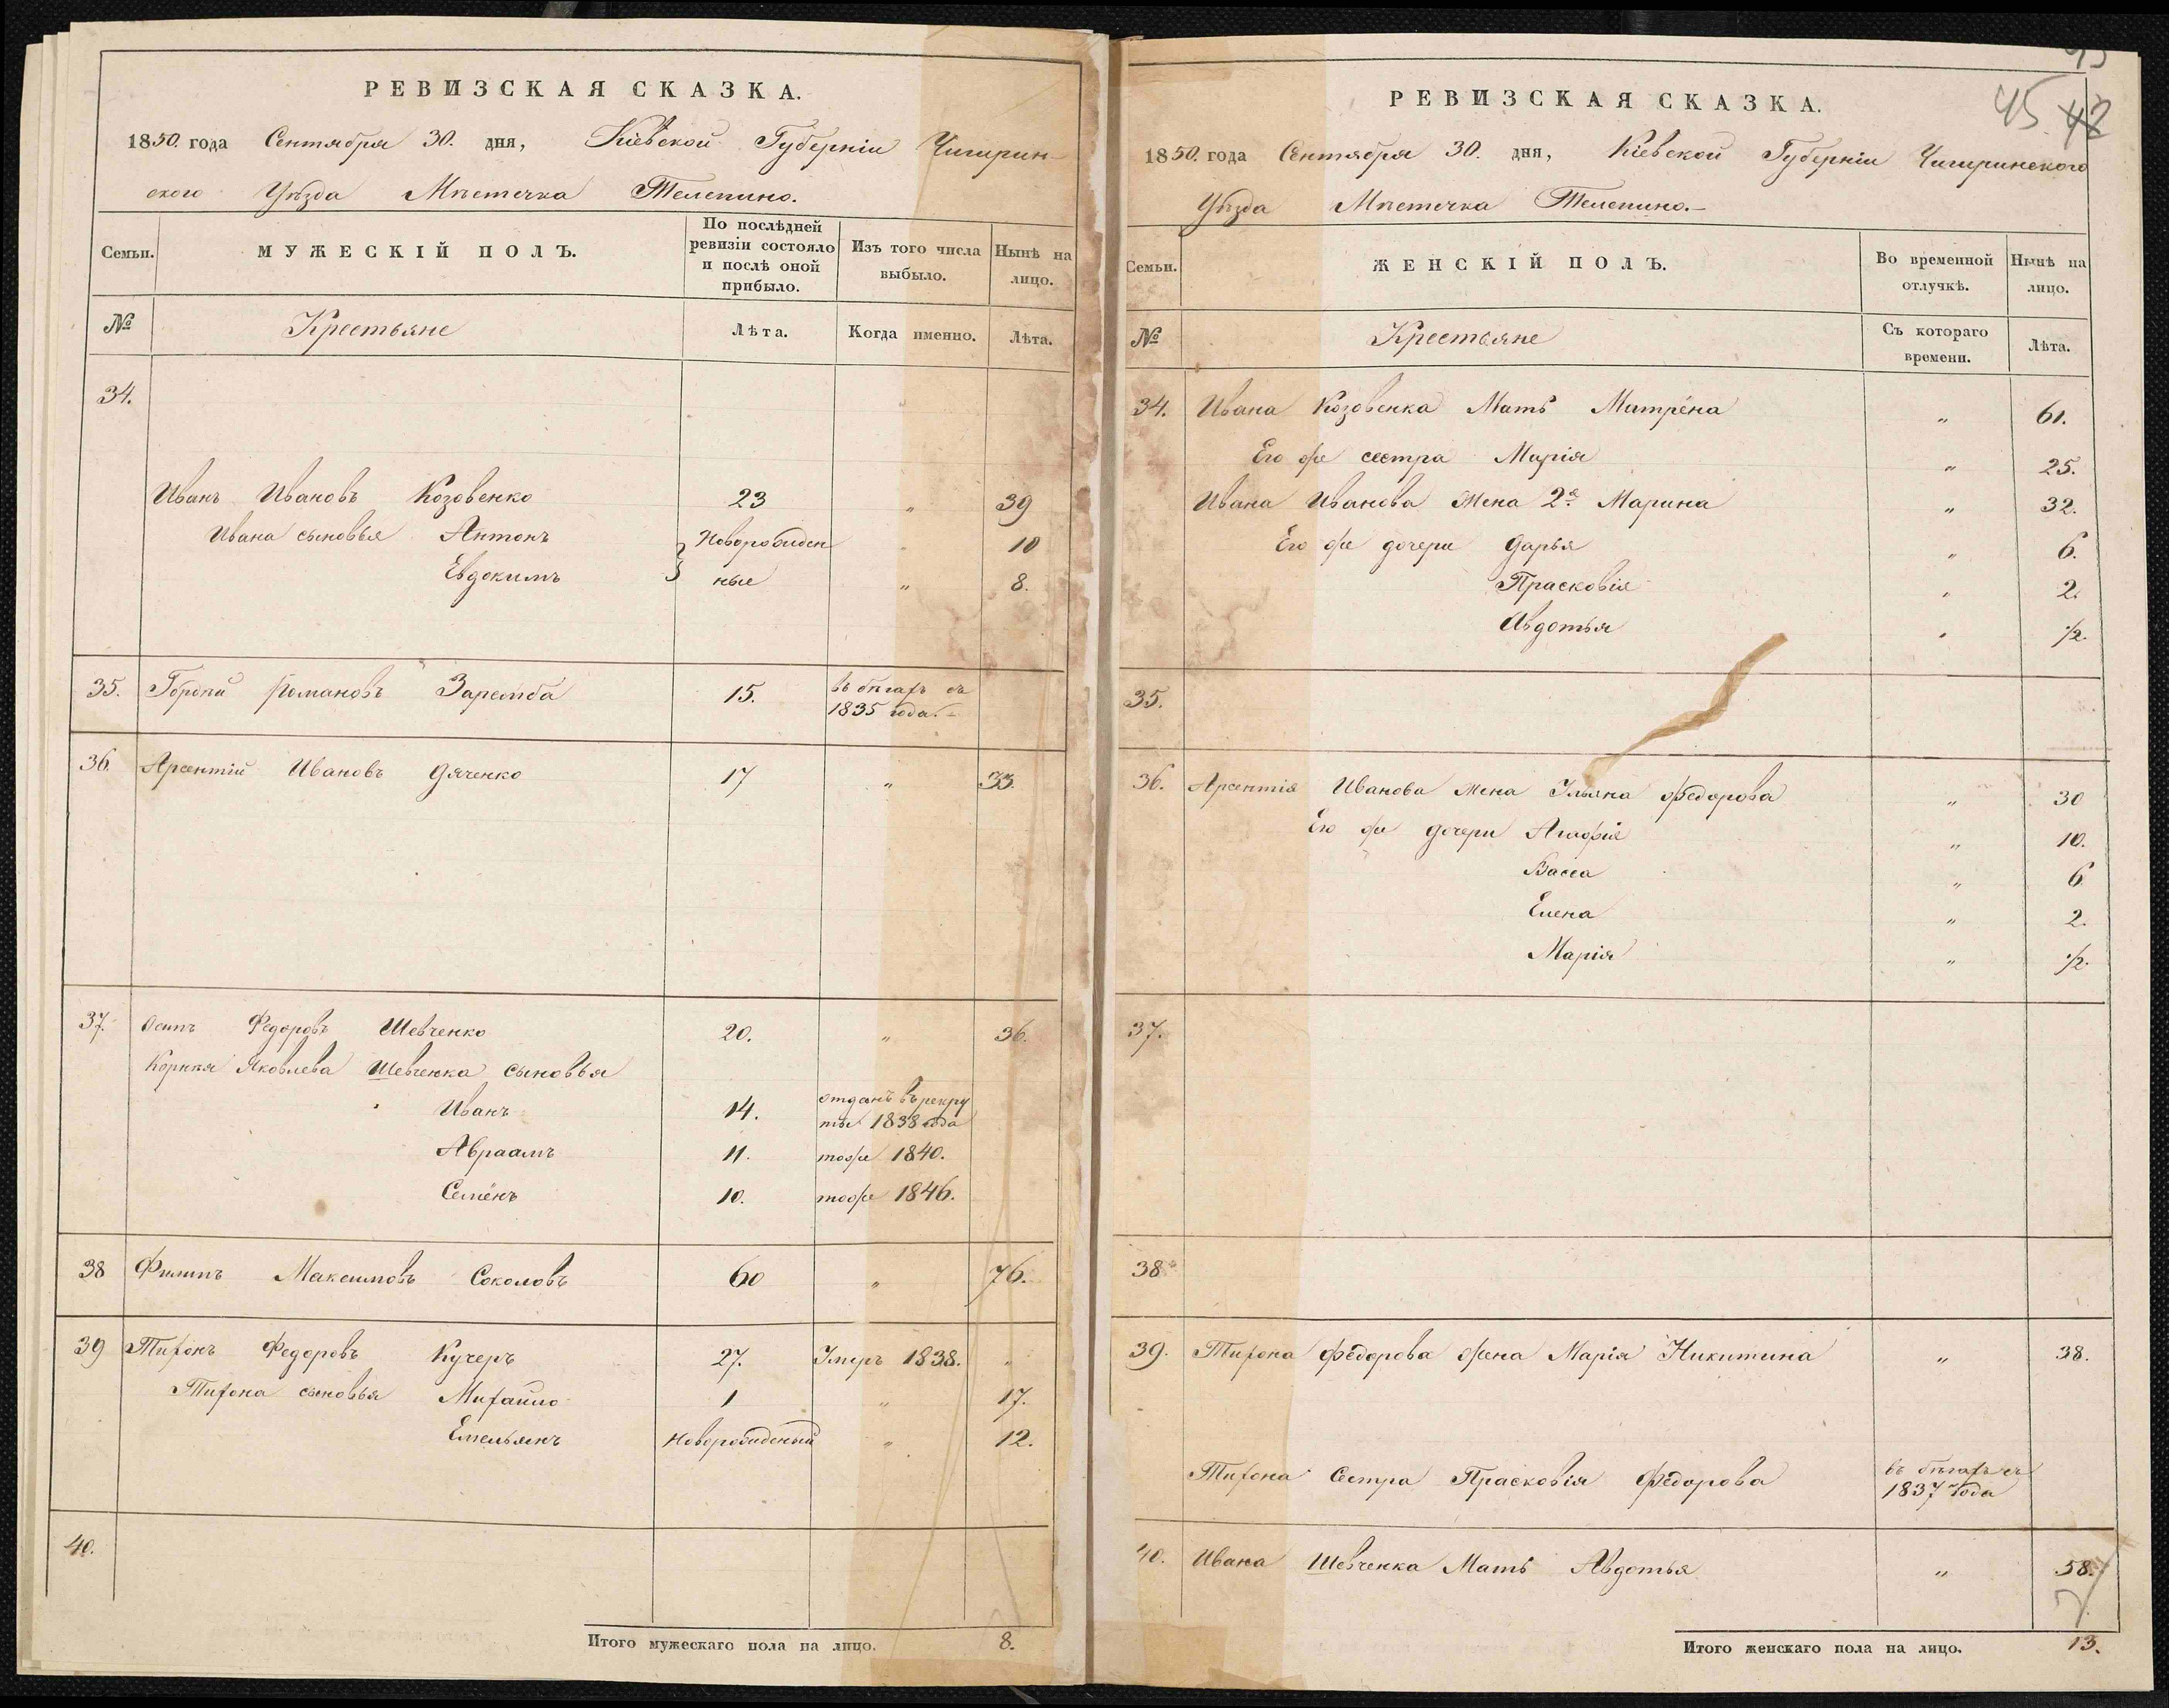 РЕВИЗСКАЯ СКАЗКА.
1850. года Сентября 30. дня, Кіевской Губерніи Чигирин-
ского Уѣзда Мѣстечка Телепино.
Семьи.
МУЖЕСКІЙ ПОЛЪ.
По послѣдней ревизіи состояло и послѣ оной прибыло.
Изъ того числа выбыло.
Нынѣ на лицо.
№ Крестьяне Лѣта. Когда именно. Лѣта.
34.
Иванъ Ивановъ Козовенко 23 „ 39
Ивана сыновья Антонъ Новорожден „ 10
Евдокимъ ные „ 8.
35. Гордѣй Романовъ Заремба 15. въ бѣгахъ съ
1835 года.
36. Арсентій Ивановъ Дяченко 17 „ 33.
37. Осипъ Федоровъ Шевченко 20. „ 36.
Корнѣя Яковлева Шевченка сыновья
Иванъ 14. отданъ въ рекру
ты 1838 года
Авраамъ 11. тоже 1840.
Семёнъ 10. тоже 1846.
38 Филипъ Максимовъ Соколовъ 60 „ 76.
39 Тихонъ Федоровъ Кучеръ 27. Умеръ 1838. „
Тихона сыновья Михайло 1 „ 17.
Емельянъ Новорожденый „ 12.
40.
Итого мужескаго пола на лицо. 8.
45 42
РЕВИЗСКАЯ СКАЗКА.
1850. года Сентября 30. дня, Кіевской Губерніи Чигиринского
Уѣзда Мѣстечка Телепино.
Семьи.
ЖЕНСКІЙ ПОЛЪ.
Во временной отлучкѣ.
Нынѣ на лицо.
№ Крестьяне Съ котораго времени. Лѣта.
34. Ивана Козовенка Мать Матрёна „ 61.
Его же сестра Марія „ 25.
Ивана Иванова жена 2я Марина „ 32.
Его же дочери Дарья „ 6.
Прасковія „ 2.
Авдотья „ 1/2.
35.
36. Арсентія Иванова жена Ульяна Федорова „ 30
Его же дочери Агафія „ 10.
Васса „ 6
Елена „ 2.
Марія „ 1/2.
37.
38.
39. Тихона Федорова жена Марія Никитина „ 38.
Тихона Сестра Прасковія Федорова въ бѣгахъ съ
1837 года
40. Ивана Шевченка Мать Авдотья „ 58.
Итого женскаго пола на лицо. 13.